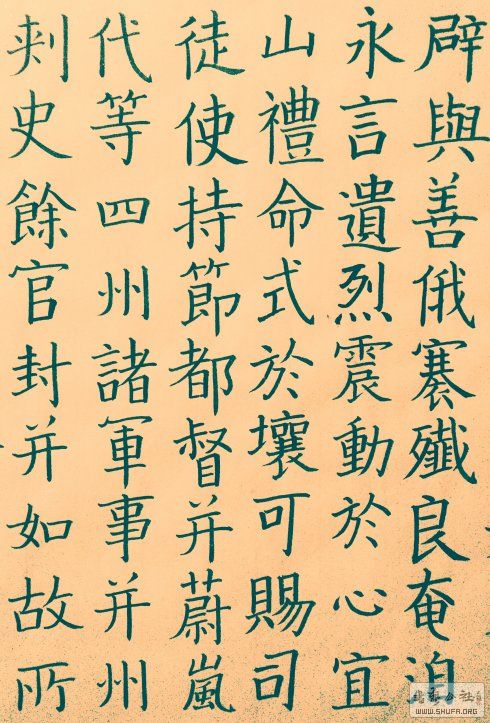 辟與善俄褰殲良奄洎
永言遺烈震動於心宜
山禮命式於壤可賜司
徒使持節都督并蔚嵐
代等四州諸軍事并州
刾史餘官封并如故所
WWW.SHUFA.ORG